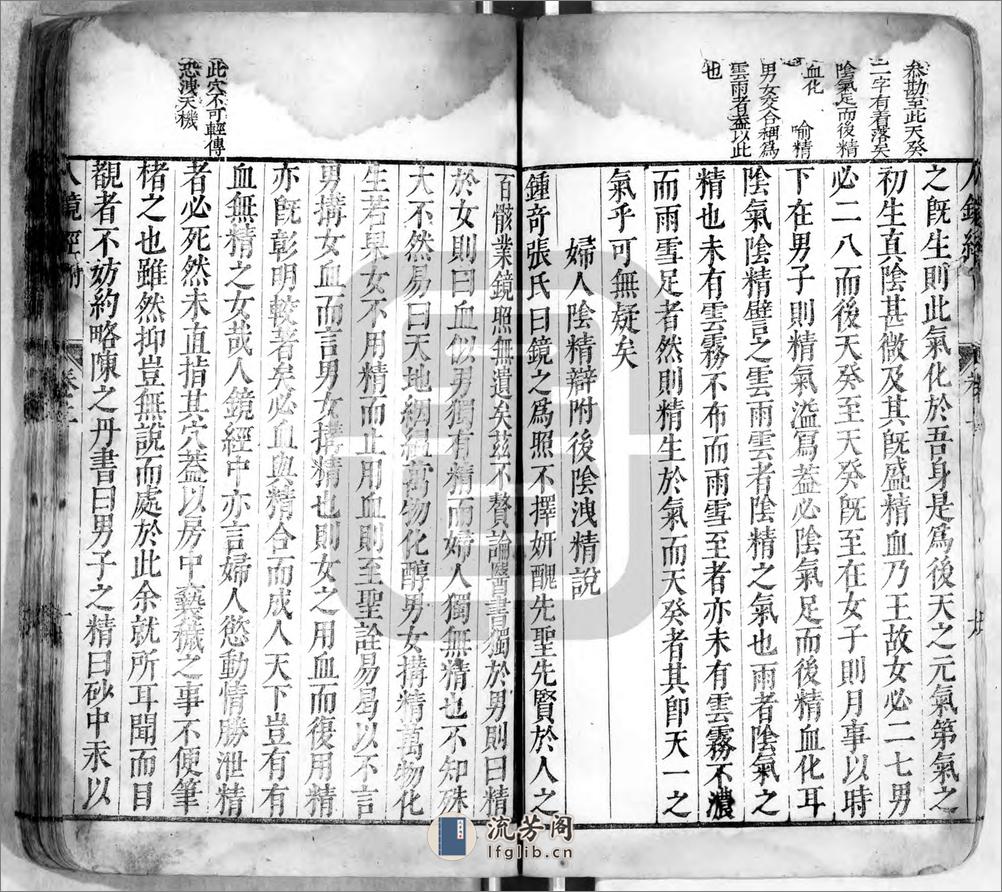 叅勘至此天癸
二字有着落矣
陰氣足而後精
血化　喻精
男女交合稱爲
雲雨者葢以此
也
之旣生則此氣化於吾身是爲後天之元氣第氣之
初生真陰甚微及其旣盛精血乃王故女必二七男
必二八而後天癸至天癸旣至在女子則月事以時
下在男子則精氣溢寫葢必陰氣足而後精血化耳
陰氣陰精譬之雲雨雲者陰精之氣也雨者陰氣之
精也未有雲霧不布而雨雪至者亦未有雲霧不濃
而雨雪足者然則精生於氣而天癸者其卽天一之
氣乎可無疑矣
婦人陰精辯附後陰洩精說
鍾奇張氏曰鏡之爲照不擇妍醜先聖先賢於人之
此穴不可輕傳
恐洩天機
百骸業鏡照無遺矣茲不贅論醫書獨於男則曰精
於女則曰血似男獨有精而婦人獨無精也不知殊
大不然易曰天地絪縕萬物化醇男女搆精萬物化
生若果女不用精而止用血則至聖詮易曷以不言
男搆女血而言男女搆精也則女之用血而復用精
亦旣彰明較著矣必血與精合而成人天下豈有有
血無精之女哉人鏡經中亦言婦人慾動情勝泄精
者必死然未直指其穴葢以房中褻穢之事不便筆
楮之也雖然抑豈無說而處於此余就所耳聞而目
覩者不妨約略陳之丹書曰男子之精曰砂中汞以
人鏡經附
卷之
流芳阁
lfglib.cn